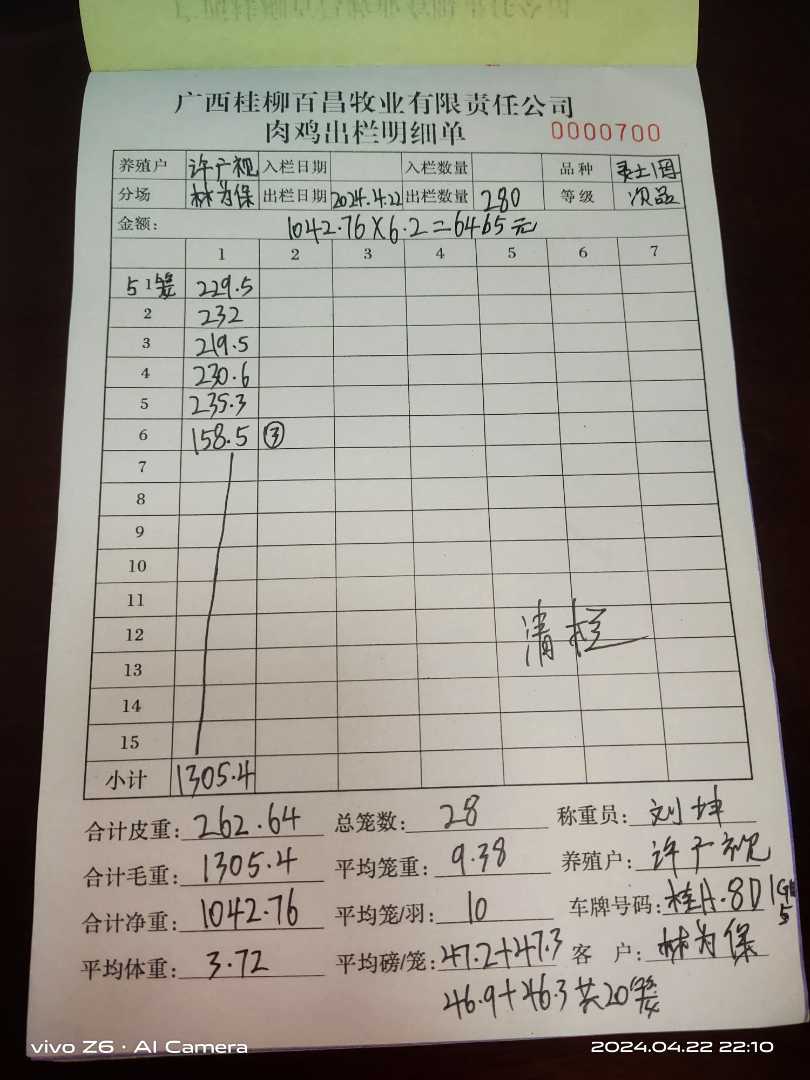 广西桂柳百昌牧业有限责任公司
肉鸡出栏明细单 0000700
养殖户 许广视 入栏日期 入栏数量 品种
分场 林为保 出栏日期 2024.4.22 出栏数量 280 等级 次品
金额: 1042.76×6.2=6465元
1 2 3 4 5 6 7
5 1笼 229.5
2 232
3 219.5
4 230.6
5 235.3
6 158.5 ③
7
8
9
10
11
12
13
14
15
清栏
小计 1305.4
合计皮重: 262.64 总笼数: 28 称重员: 刘坤
合计毛重: 1305.4 平均笼重: 9.38 养殖户: 许广视
合计净重: 1042.76 平均笼/羽: 10 车牌号码: 桂A·8D1
平均体重: 3.72 平均磅/笼: 47.2+47.3 客户: 林为保
46.9+46.3共20笼
vivo Z6 · AI Camera 2024.04.22 22:10